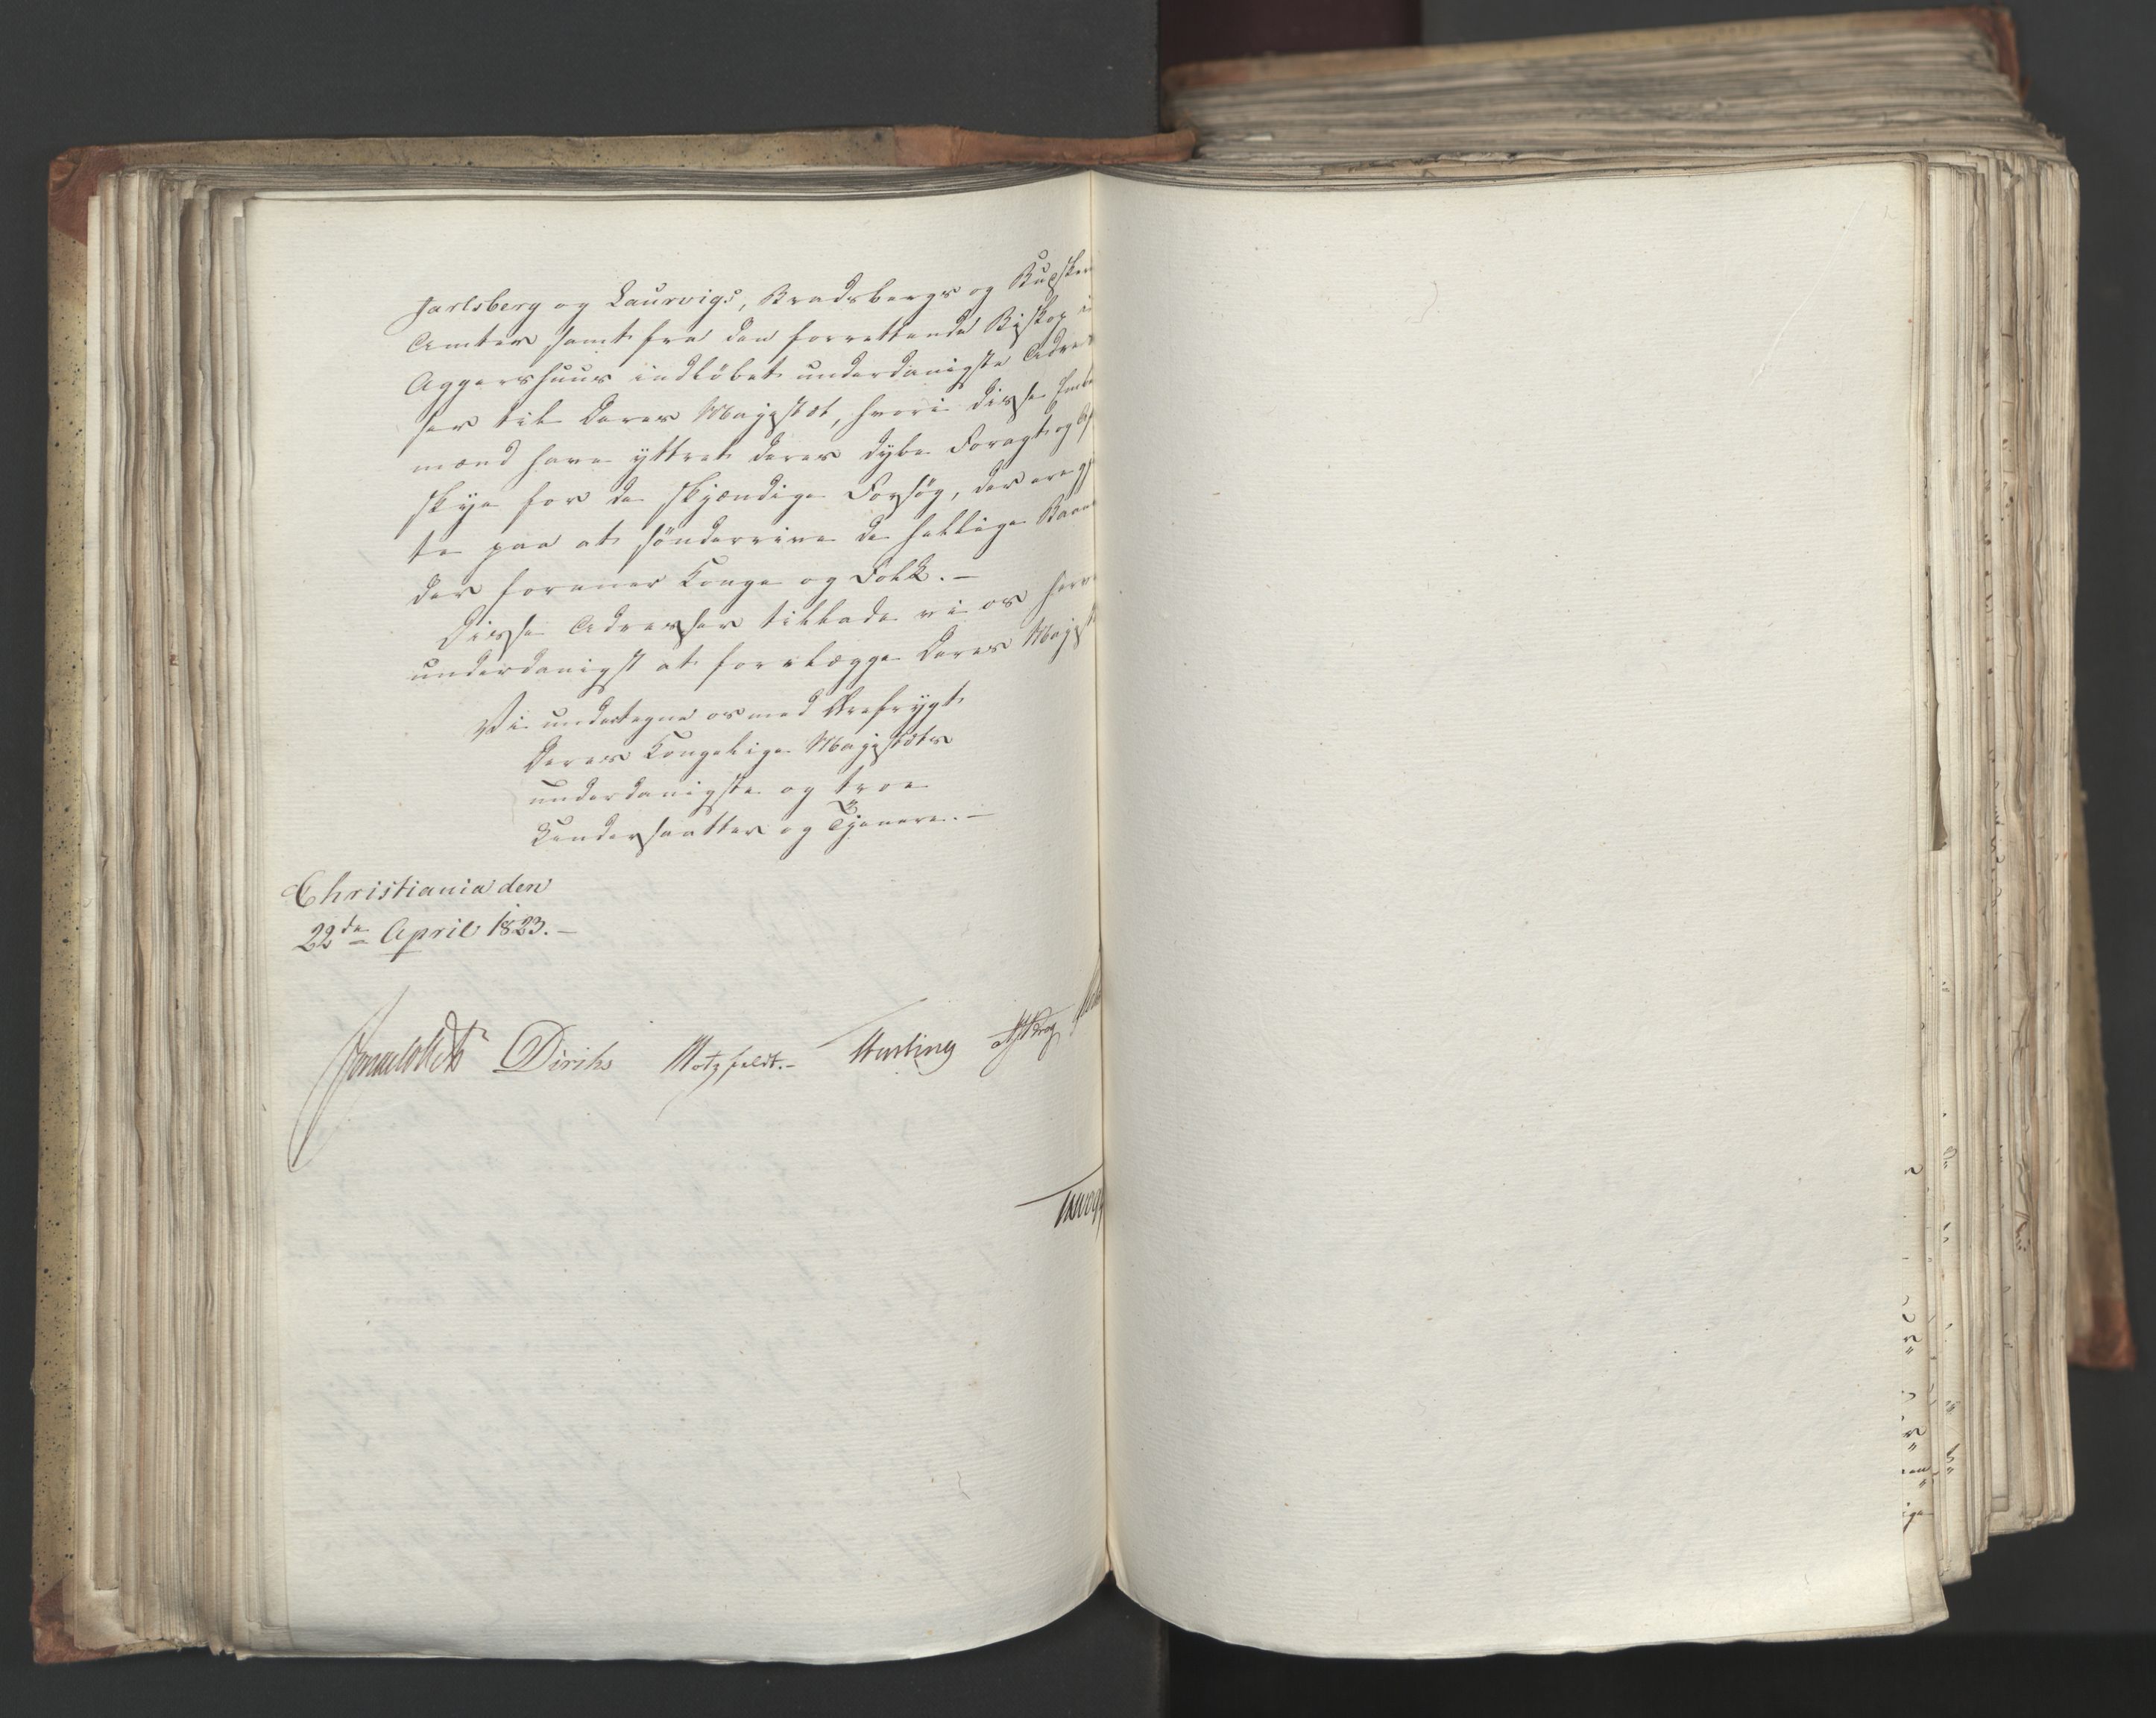 Jarlsberg og Laurvigs, Bradsbergs og Buskeru
Amter samt fra den forrettende Biskop i
Aggershuus indløbet underdanigste Adres
ser til Deres Majestæt, hvori disse Embe
mænd have yttret deres dybe Foragt og Af
skye for de skjændige Forsøg, der ere gj
te paa at sønderrive de hellige Baan
der forener Konge og Folk. –
Disse Adresser tillade vi os herv
underdanigst at forelægge Deres Majest
Vi undertegne os med Ærefrygt
Deres Kongelige Majestæts
underdanigste og troe
Undersaatter og Tjenere. –
Christiania den
22de April 1823. –
Sommerhielm Diriks Motzfeldt. – Hertling Krog